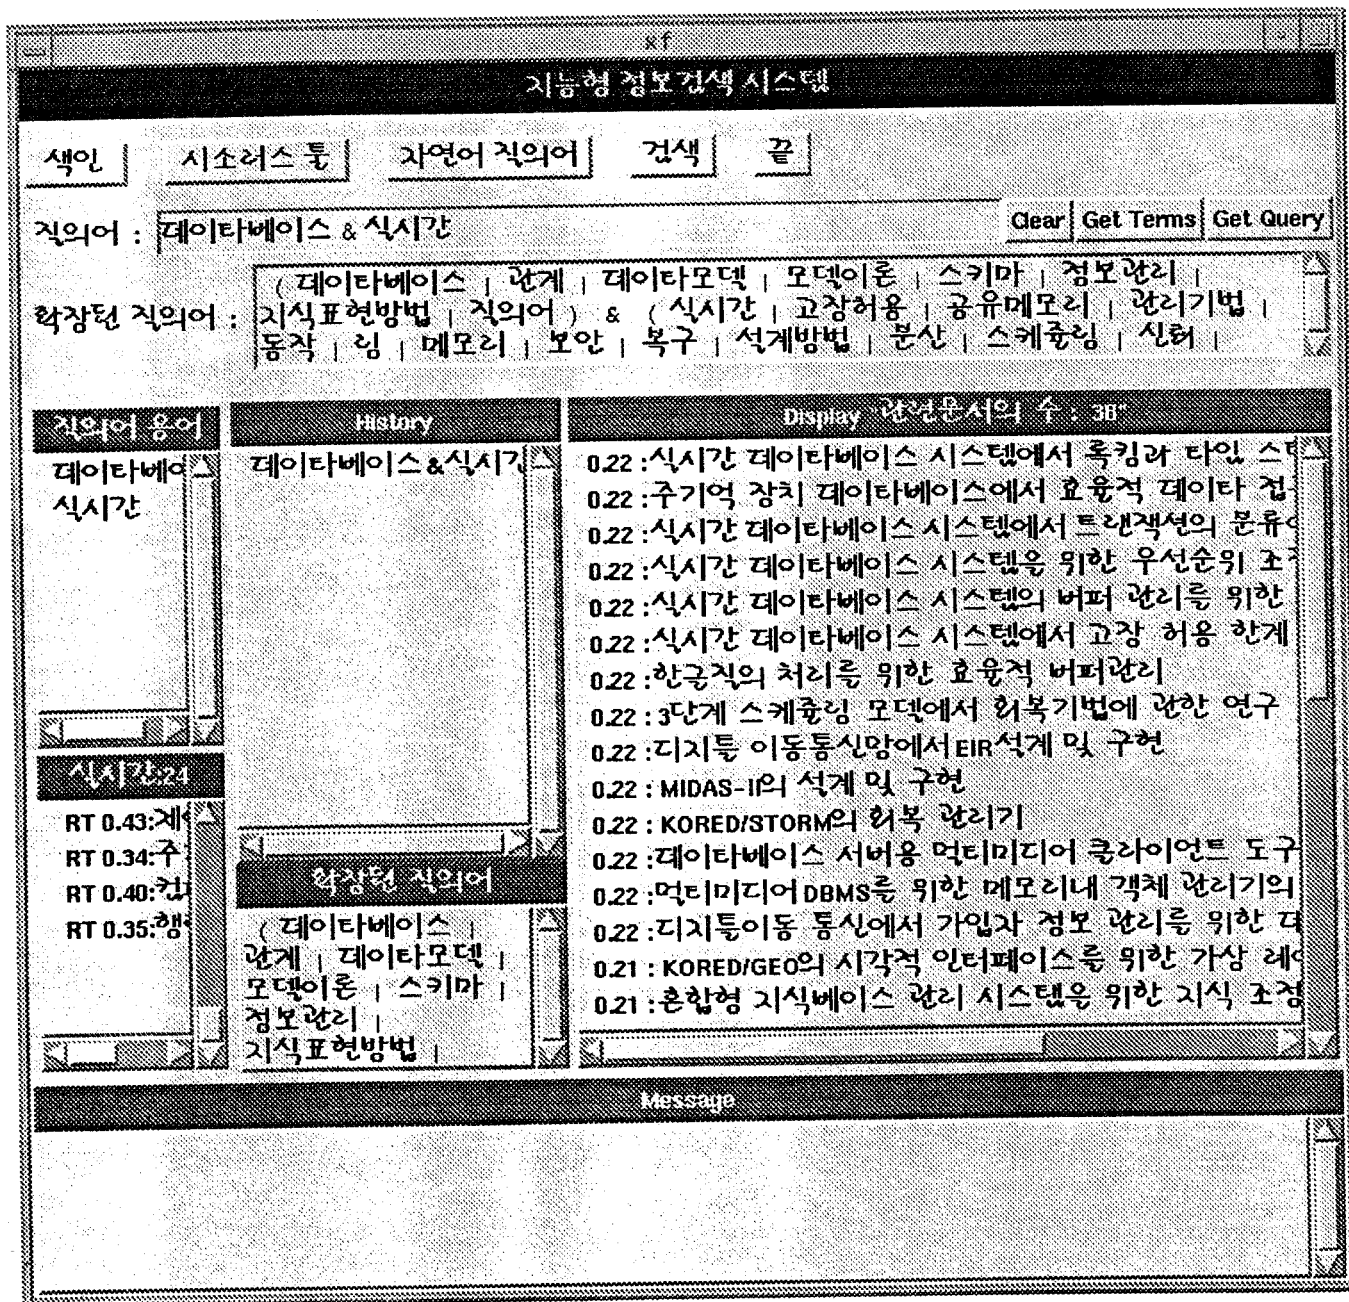 xf
지능형 정보검색 시스템
색인 시소러스 툴 자연어 질의어 검색 끝
질의어 : 데이타베이스 & 실시간 Clear Get Terms Get Query
확장된 질의어 : ( 데이타베이스 | 관계 | 데이타모델 | 모델이론 | 스키마 | 정보관리 |
지식표현방법 | 질의어 ) & ( 실시간 | 고장허용 | 공유메모리 | 관리기법 |
동작 | 링 | 메모리 | 보안 | 복구 | 설계방법 | 분산 | 스케쥴링 | 신뢰 |
질의어 용어
데이타베이
실시간
실시간:21
RT 0.43:제
RT 0.34:주
RT 0.40:컴
RT 0.35:행
History
데이타베이스&실시간
확장된 질의어
( 데이타베이스 |
관계 | 데이타모델 |
모델이론 | 스키마 |
정보관리 |
지식표현방법 |
Display "관련문서의 수 : 38"
0.22 :실시간 데이타베이스 시스템에서 록킹과 타임 스
0.22 :주기억 장치 데이타베이스에서 효율적 데이타 접
0.22 :실시간 데이타베이스 시스템에서 트랜잭션의 분류
0.22 :실시간 데이타베이스 시스템을 위한 우선순위 조
0.22 :실시간 데이타베이스 시스템의 버퍼 관리를 위한
0.22 :실시간 데이타베이스 시스템에서 고장 허용 한계
0.22 :한글질의 처리를 위한 효율적 버퍼관리
0.22 :3단계 스케쥴링 모델에서 회복기법에 관한 연구
0.22 :디지틀 이동통신망에서 EIR설계 및 구현
0.22 : MIDAS-II의 설계 및 구현
0.22 : KORED/STORM의 회복 관리기
0.22 :데이타베이스 서버용 멀티미디어 클라이언트 도구
0.22 :멀티미디어 DBMS를 위한 메모리내 객체 관리기의
0.22 :디지틀이동 통신에서 가입자 정보 관리를 위한 데
0.21 : KORED/GEO의 시각적 인터페이스를 위한 가상 레
0.21 :혼합형 지식베이스 관리 시스템을 위한 지식 조정
Message